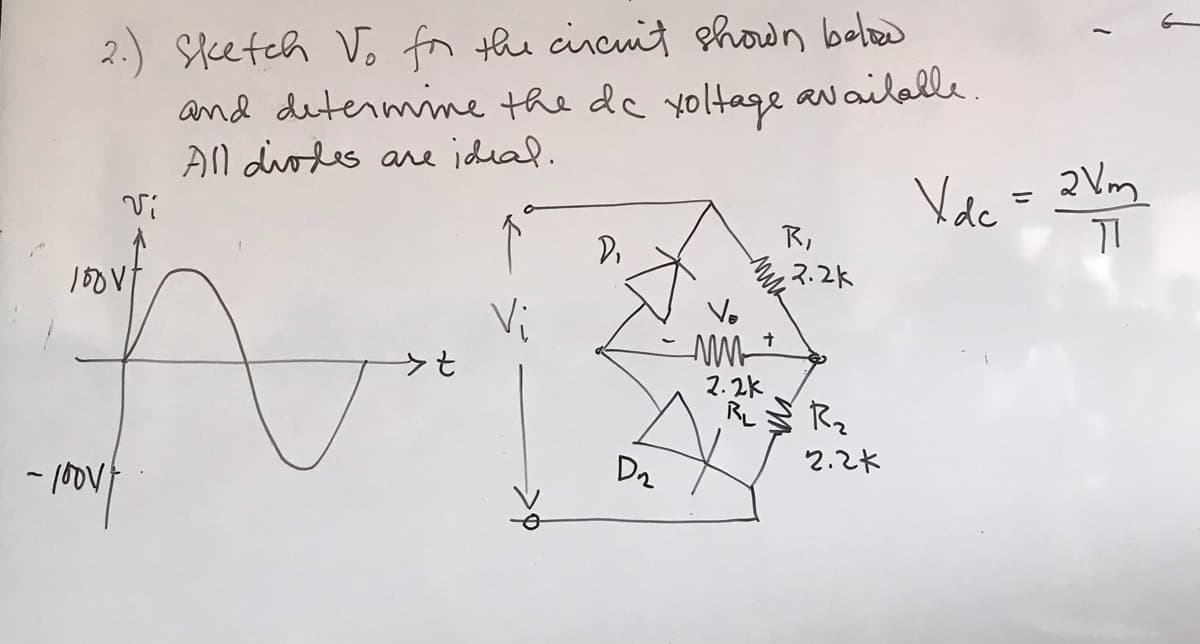 2.) Sketch Vo for the circuit shown below
and determine the dc voltage available.
All diodes are ideal.
Vdc = 2Vm / π
Vi
100V
t
-100V
Vi
D1
R1
2.2K
Vo
- +
2.2K
RL
R2
2.2K
D2